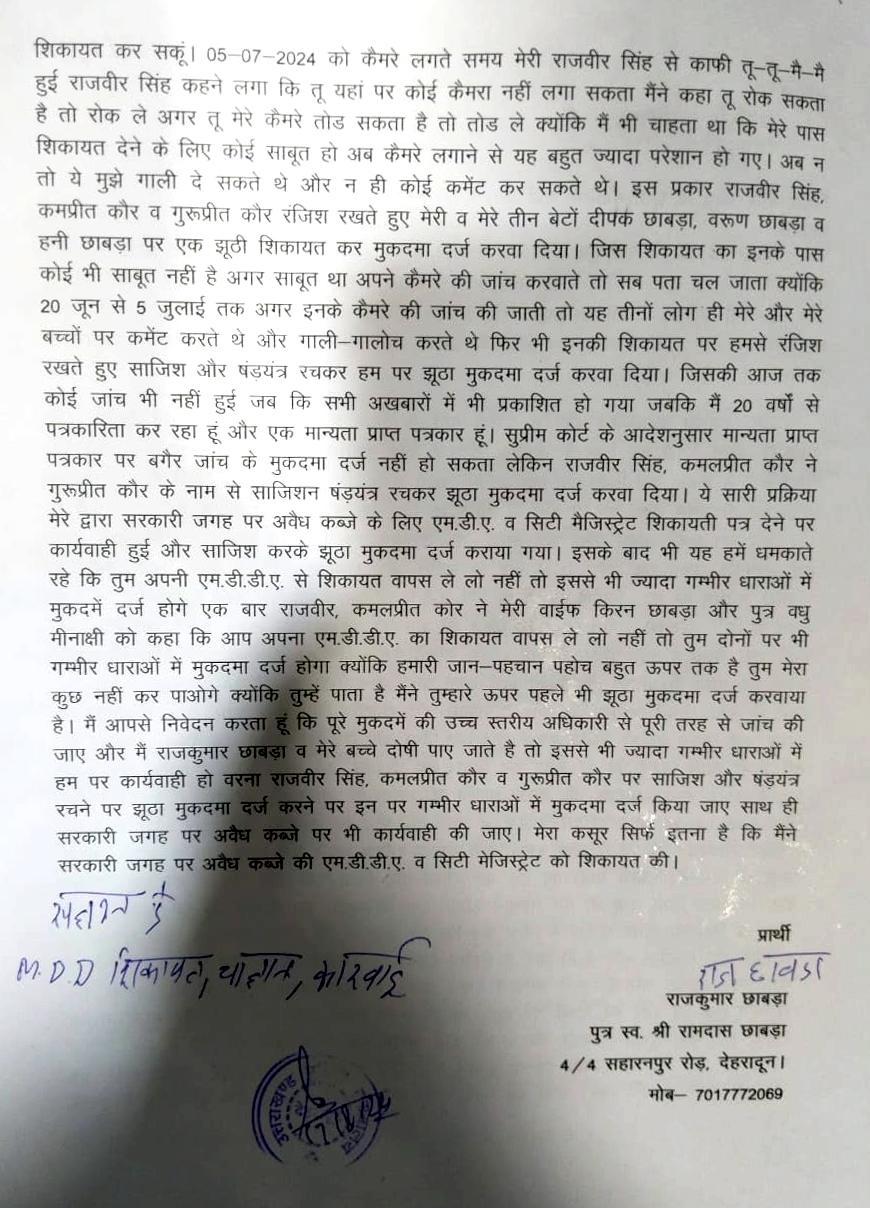 शिकायत कर सकूं। 05–07–2024 को कैमरे लगते समय मेरी राजवीर सिंह से काफी तू–तू–मै–मै
हुई राजवीर सिंह कहने लगा कि तू यहां पर कोई कैमरा नहीं लगा सकता मैंने कहा तू रोक सकता
है तो रोक ले अगर तू मेरे कैमरे तोड सकता है तो तोड ले क्योंकि मैं भी चाहता था कि मेरे पास
शिकायत देने के लिए कोई साबूत हो अब कैमरे लगाने से यह बहुत ज्यादा परेशान हो गए। अब न
तो ये मुझे गाली दे सकते थे और न ही कोई कमेंट कर सकते थे। इस प्रकार राजवीर सिंह,
कमप्रीत कौर व गुरूप्रीत कौर रंजिश रखते हुए मेरी व मेरे तीन बेटों दीपक छाबड़ा, वरूण छाबड़ा व
हनी छाबड़ा पर एक झूठी शिकायत कर मुकदमा दर्ज करवा दिया। जिस शिकायत का इनके पास
कोई भी साबूत नहीं है अगर साबूत था अपने कैमरे की जांच करवाते तो सब पता चल जाता क्योंकि
20 जून से 5 जुलाई तक अगर इनके कैमरे की जांच की जाती तो यह तीनों लोग ही मेरे और मेरे
बच्चों पर कमेंट करते थे और गाली–गालोच करते थे फिर भी इनकी शिकायत पर हमसे रंजिश
रखते हुए साजिश और षंड़यंत्र रचकर हम पर झूठा मुकदमा दर्ज करवा दिया। जिसकी आज तक
कोई जांच भी नहीं हुई जब कि सभी अखबारों में भी प्रकाशित हो गया जबकि मैं 20 वर्षों से
पत्रकारिता कर रहा हूं और एक मान्यता प्राप्त पत्रकार हूं। सुप्रीम कोर्ट के आदेशनुसार मान्यता प्राप्त
पत्रकार पर बगैर जांच के मुकदमा दर्ज नहीं हो सकता लेकिन राजवीर सिंह, कमलप्रीत कौर ने
गुरूप्रीत कौर के नाम से साजिशन षंड़यंत्र रचकर झूठा मुकदमा दर्ज करवा दिया। ये सारी प्रक्रिया
मेरे द्वारा सरकारी जगह पर अवैध कब्जे के लिए एम.डी.ए. व सिटी मैजिस्ट्रेट शिकायती पत्र देने पर
कार्यवाही हुई और साजिश करके झूठा मुकदमा दर्ज कराया गया। इसके बाद भी यह हमें धमकाते
रहे कि तुम अपनी एम.डी.डी.ए. से शिकायत वापस ले लो नहीं तो इससे भी ज्यादा गम्भीर धाराओं में
मुकदमें दर्ज होगे एक बार राजवीर, कमलप्रीत कोर ने मेरी वाईफ किरन छाबड़ा और पुत्र वधु
मीनाक्षी को कहा कि आप अपना एम.डी.डी.ए. का शिकायत वापस ले लो नहीं तो तुम दोनों पर भी
गम्भीर धाराओं में मुकदमा दर्ज होगा क्योंकि हमारी जान–पहचान पहोच बहुत ऊपर तक है तुम मेरा
कुछ नहीं कर पाओगे क्योंकि तुम्हें पाता है मैंने तुम्हारे ऊपर पहले भी झूठा मुकदमा दर्ज करवाया
है। मैं आपसे निवेदन करता हूं कि पूरे मुकदमें की उच्च स्तरीय अधिकारी से पूरी तरह से जांच की
जाए और मैं राजकुमार छाबड़ा व मेरे बच्चे दोषी पाए जाते है तो इससे भी ज्यादा गम्भीर धाराओं में
हम पर कार्यवाही हो वरना राजवीर सिंह, कमलप्रीत कौर व गुरूप्रीत कौर पर साजिश और षंड़यंत्र
रचने पर झूठा मुकदमा दर्ज करने पर इन पर गम्भीर धाराओं में मुकदमा दर्ज किया जाए साथ ही
सरकारी जगह पर अवैध कब्जे पर भी कार्यवाही की जाए। मेरा कसूर सिर्फ इतना है कि मैंने
सरकारी जगह पर अवैध कब्जे की एम.डी.डी.ए. व सिटी मेजिस्ट्रेट को शिकायत की।
M.D.D शिकायत,
प्रार्थी
राज छाबडा
राजकुमार छाबड़ा
पुत्र स्व. श्री रामदास छाबड़ा
4/4 सहारनपुर रोड़, देहरादून।
मोब– 7017772069
उत्तराखण्ड